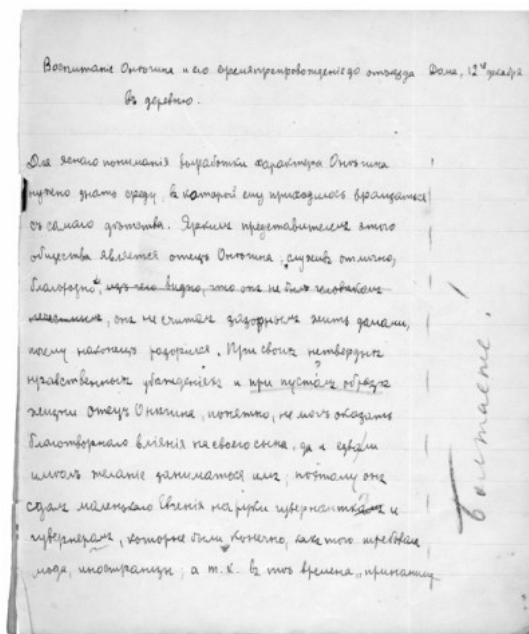 Воспитаніе Онѣгина и его времяпрепровожденіе до отъѣзда
въ деревню.
Дома, 12го декабря
Для яснаго пониманія выработки характера Онѣгина
нужно знать среду, въ которой ему приходилось вращаться
съ самаго дѣтства. Яркимъ представителемъ этого
общества является отецъ Онѣгина; служивъ отлично,
благородно, изъ чего видно, что онъ не былъ человѣкомъ
онъ не считалъ зазорнымъ жить долгами,
почему наконецъ разорился. При своихъ нетвердыхъ
нравственныхъ убѣжденіяхъ и при пустомъ образѣ
жизни отецъ Онѣгина, понятно, не могъ оказать
благотворнаго вліянія на своего сына, да и едва ли
имѣлъ желаніе заниматься имъ; поэтому онъ
сдалъ маленькаго Евгенія на руки гувернанткамъ и
гувернерамъ, которые были конечно, какъ того требовала
мода, иностранцы; а т. к. въ тѣ времена
Болтаете!